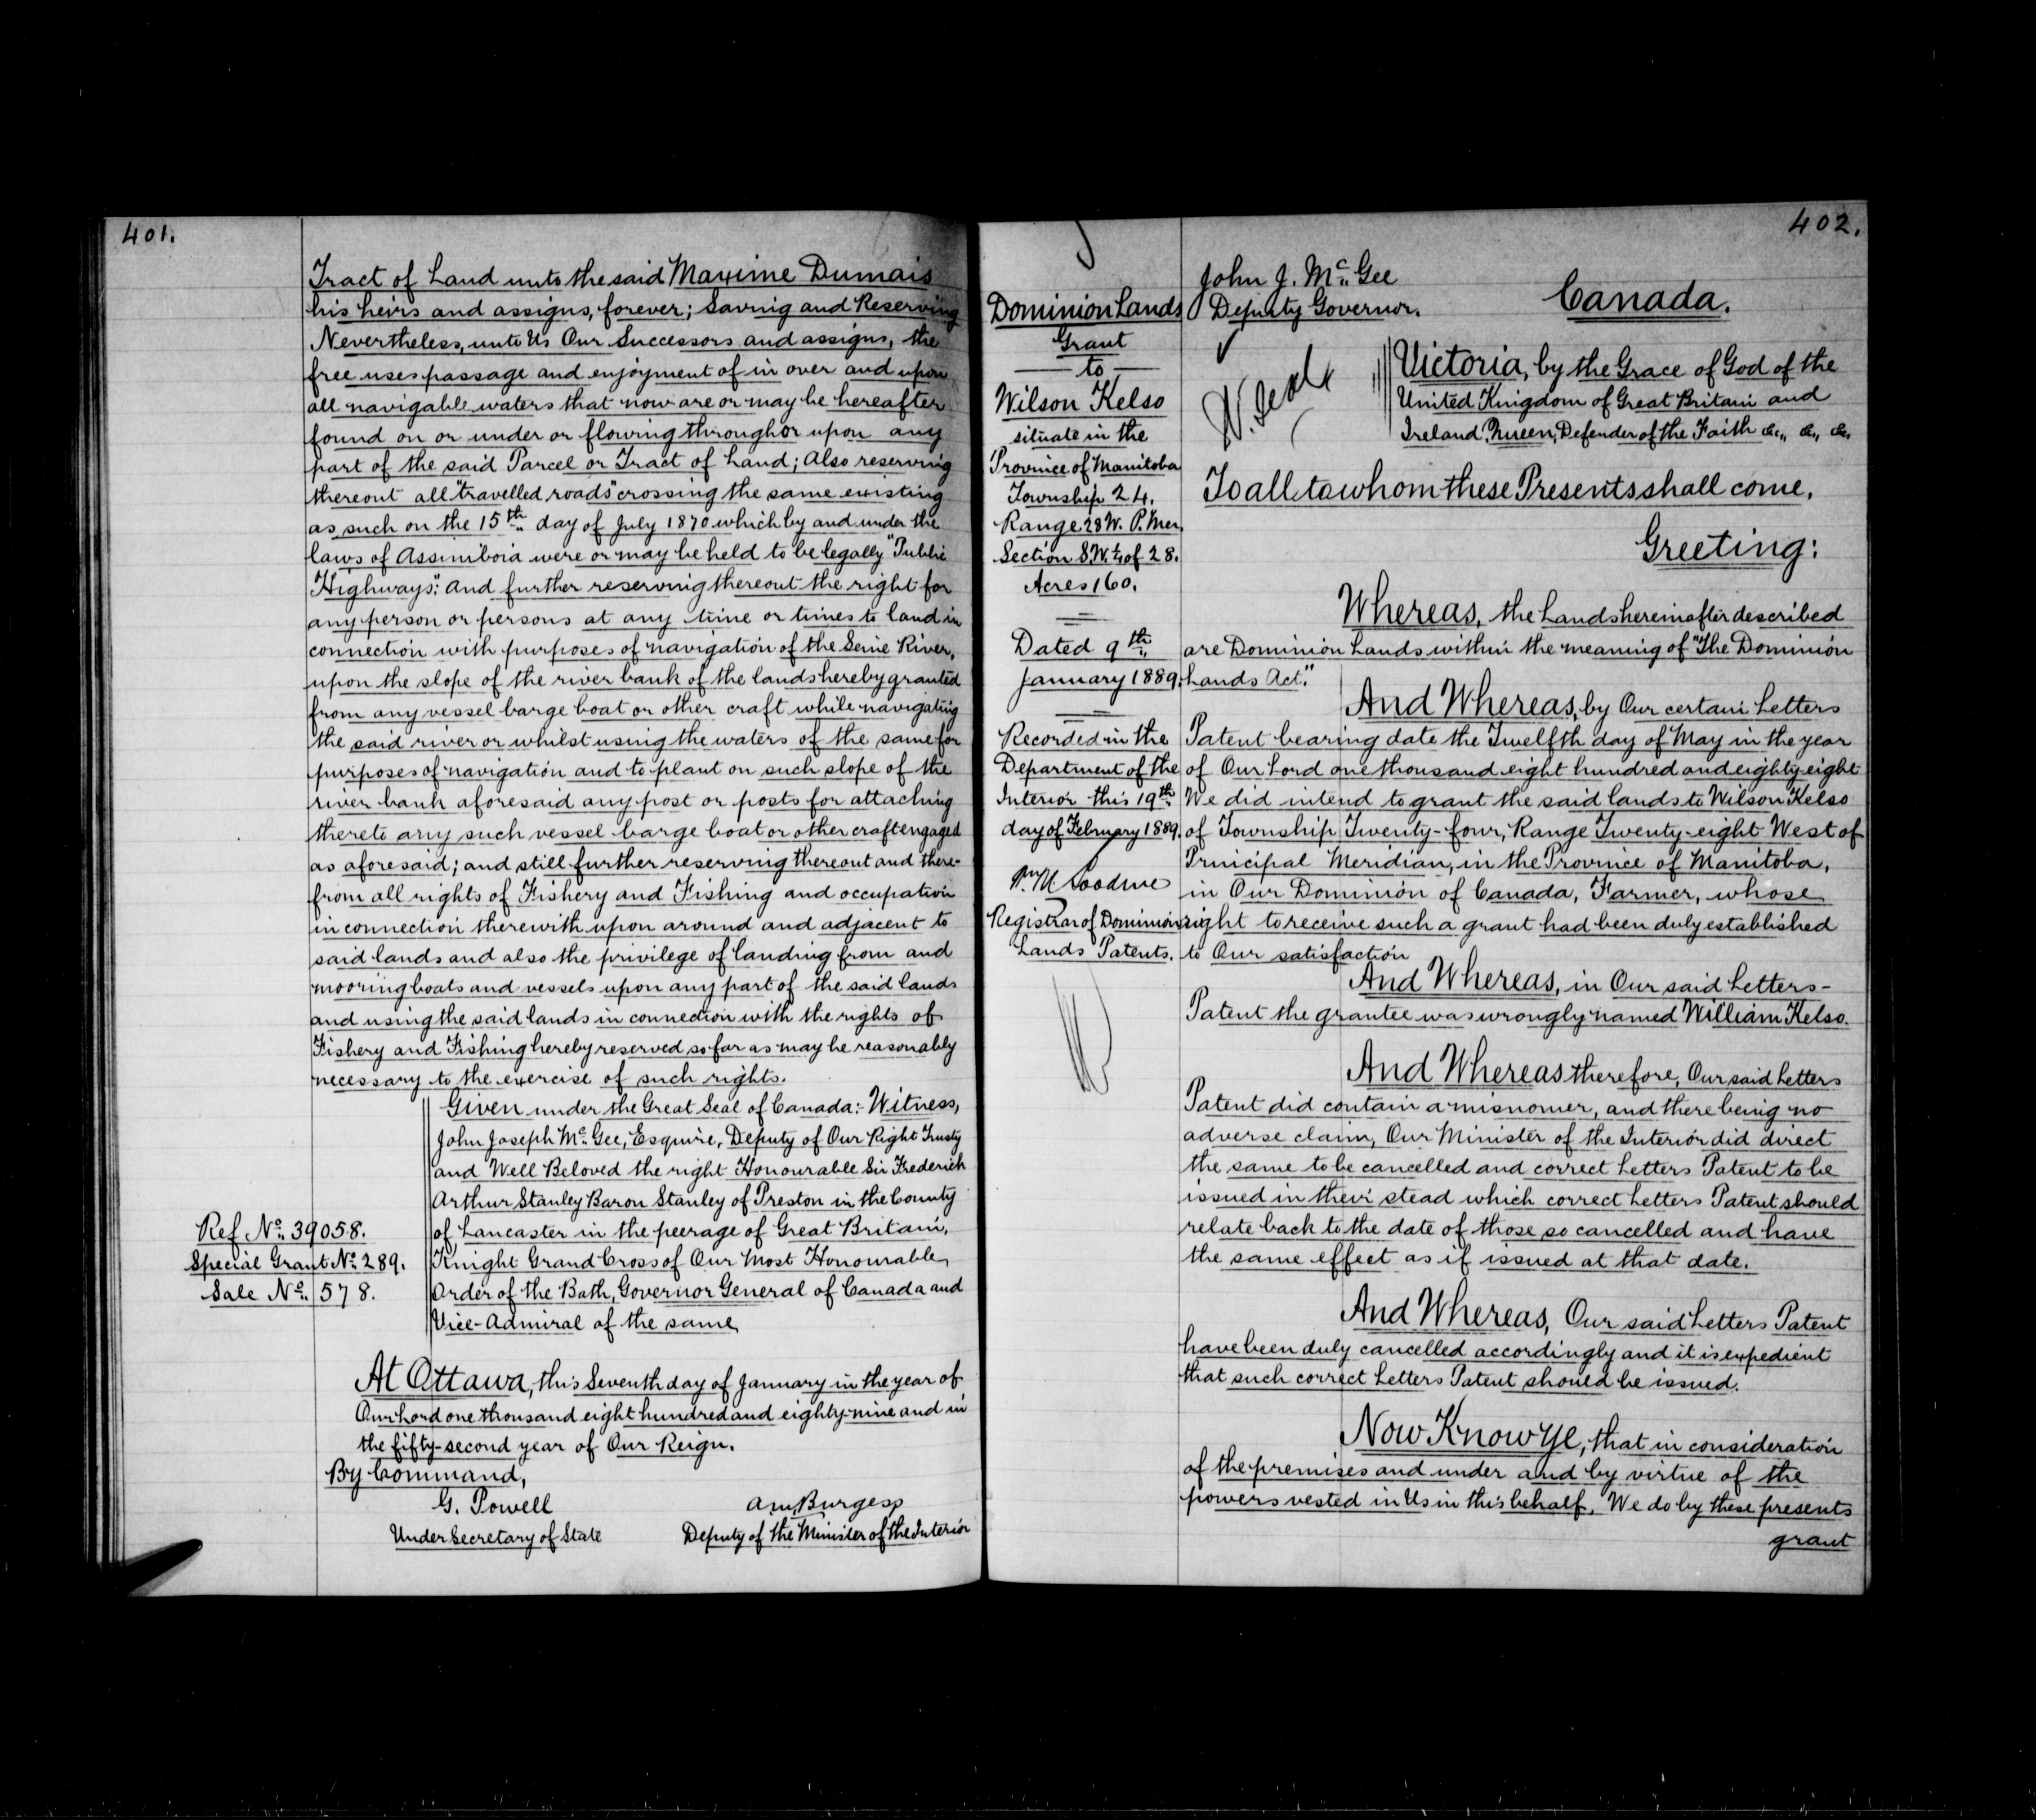 401.
Tract of Land unto the said Maxime Dumais
his heirs and assigns, forever; Saving and Reserving
Nevertheless, unto Us Our Successors and assigns, the
free uses passage and enjoyment of in over and upon
all navigable waters that now are or may be hereafter
found on or under or flowing through or upon any
part of the said Parcel or Tract of Land; Also reserving
thereout all "travelled roads" crossing the same existing
as such on the 15th day of July 1870 which by and under the
laws of Assiniboia were or may be held to be legally "Public
Highways": And further reserving thereout the right for
any person or persons at any time or times to land in
connection with purposes of navigation of the Seine River,
upon the slope of the river bank of the lands hereby granted
from any vessel barge boat or other craft while navigating
the said river or whilst using the waters of the same for
purposes of navigation and to plant on such slope of the
river bank aforesaid any post or posts for attaching
thereto any such vessel barge boat or other craft engaged
as aforesaid; and still further reserving thereout and there-
from all rights of Fishery and Fishing and occupation
in connection therewith upon around and adjacent to
said lands and also the privilege of landing from and
mooring boats and vessels upon any part of the said lands
and using the said lands in connection with the rights of
Fishery and Fishing hereby reserved so far as may be reasonably
necessary to the exercise of such rights.
Given under the Great Seal of Canada:- Witness,
John Joseph McGee, Esquire, Deputy of Our Right Trusty
and Well Beloved the right Honourable Sir Frederick
Arthur Stanley Baron Stanley of Preston in the County
of Lancaster in the peerage of Great Britain,
Knight Grand Cross of Our Most Honourable
Order of the Bath, Governor General of Canada and
Vice-Admiral of the same
Ref No. 39058.
Special Grant No. 289.
Sale No. 578.
At Ottawa, this Seventh day of January in the year of
Our Lord one thousand eight hundred and eighty-nine and in
the fifty-second year of Our Reign.
By Command,
G. Powell
Under Secretary of State
A M Burgess
Deputy of the Minister of the Interior
402.
Dominion Lands
Grant
to
Wilson Kelso
situate in the
Province of Manitoba
Township 24.
Range 28 W. P. Mer.
Section S.W. ¼ of 28.
Acres 160.
Dated 9th
January 1889.
Recorded in the
Department of the
Interior this 19th
day of February 1889.
Registrar of Dominion
Lands Patents.
John J. McGee
Deputy Governor.
Canada.
Victoria, by the Grace of God of the
United Kingdom of Great Britain and
Ireland, Queen, Defender of the Faith &c., &c., &c.
To all to whom these Presents shall come,
Greeting:
Whereas, the Lands hereinafter described
are Dominion Lands within the meaning of "The Dominion
Lands Act."
And Whereas, by Our certain Letters
Patent bearing date the Twelfth day of May in the year
of Our Lord one thousand eight hundred and eighty-eight
We did intend to grant the said lands to Wilson Kelso
of Township Twenty-four, Range Twenty-eight West of
Principal Meridian, in the Province of Manitoba,
in Our Dominion of Canada, Farmer, whose
right to receive such a grant had been duly established
to Our satisfaction
And Whereas, in Our said Letters-
Patent the grantee was wrongly named William Kelso.
And Whereas therefore, Our said Letters
Patent did contain a misnomer, and there being no
adverse claim, Our Minister of the Interior did direct
the same to be cancelled and correct Letters Patent to be
issued in their stead which correct Letters Patent should
relate back to the date of those so cancelled and have
the same effect as if issued at that date.
And Whereas, Our said Letters Patent
have been duly cancelled accordingly and it is expedient
that such correct Letters Patent should be issued.
Now Know Ye, that in consideration
of the premises and under and by virtue of the
powers vested in Us in this behalf, We do by these presents
grant